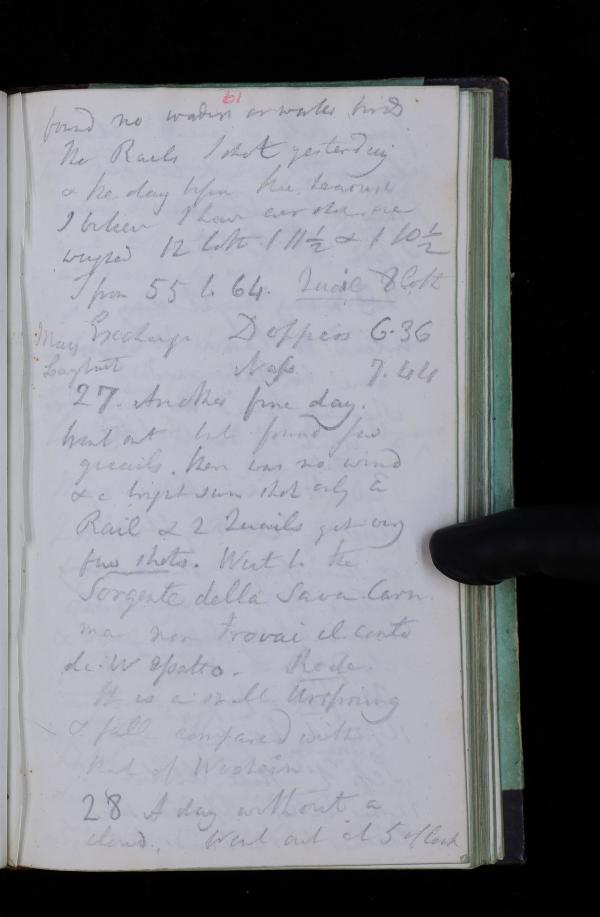 61
found no waders or water birds
The Rails I shot yesterday
& the day before the heaviest
I believe I have ever shot
weighed 12 loth 1 11½ & 1 10½
I from 55 to 64. Quail 8 loth
Exchange Doppios 6.36
Naps 7.44
27. Another fine day.
went out but found few
quails. there was no wind
& a bright sun shot only a
Rail & 2 Quails got very
few shots. Went to the
Sorgente della Sava. Carn.
ma non trovai el conte
de W. Rode.
It is a small Ursprung
& fall compared with
that of Wochein
28 A day without a
cloud. Went out at 5 o'clock